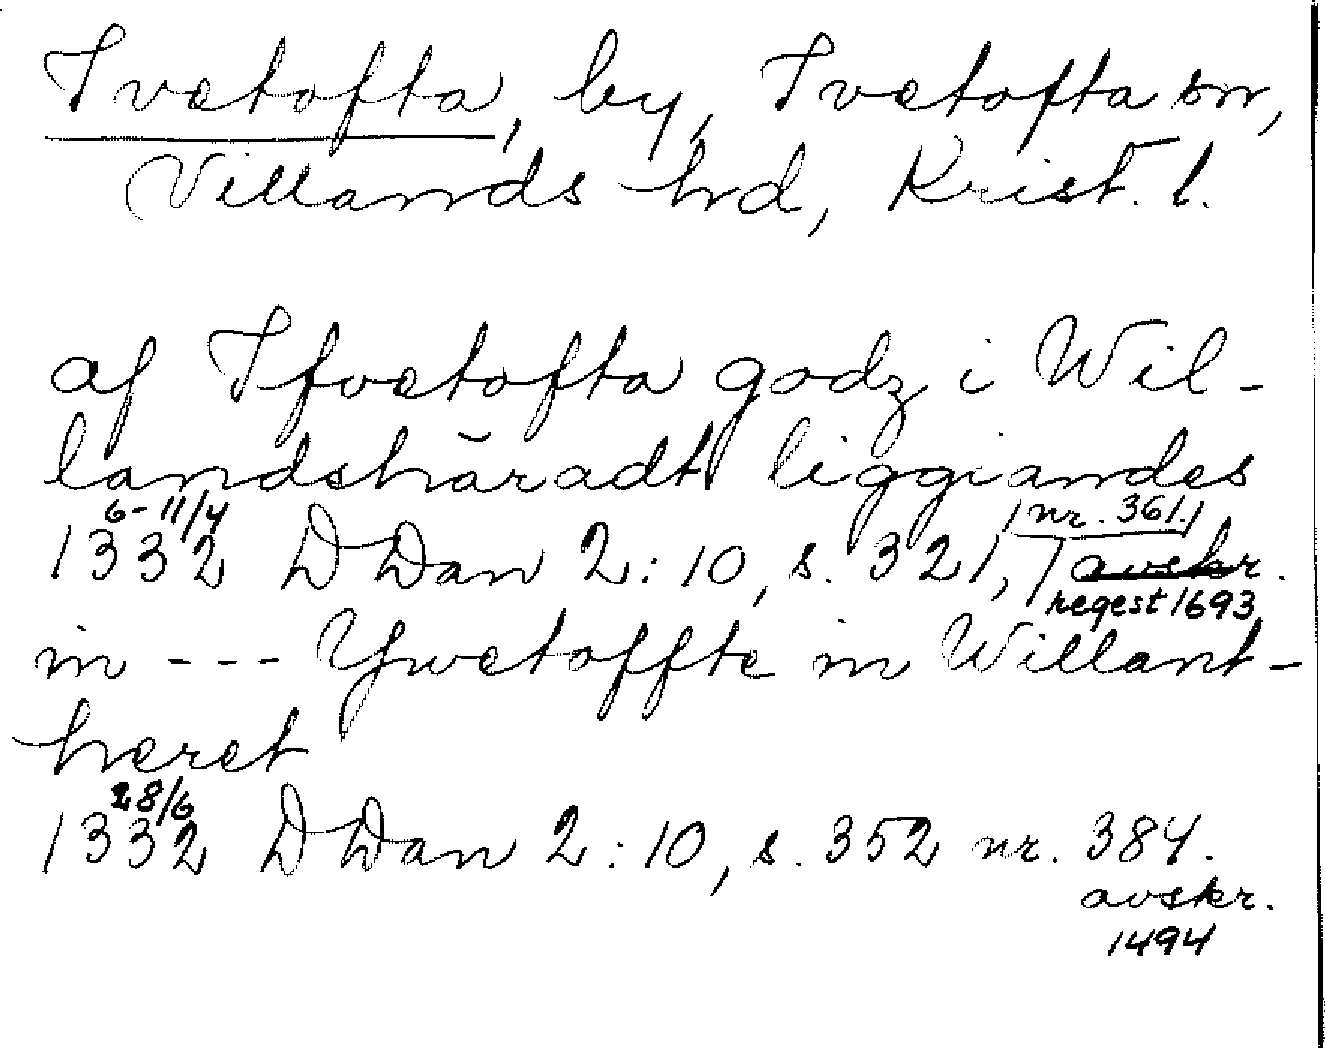 Ivetofta, by, Ivetofta sn,
Villands hd, Krist. l.
af Ifvetofta godz i Wil-
landshäradt liggiandes
6-11/4
1332 DDan 2:10, s. 321, nr. 361. avskr.
regest 1693
in --- Ywetoffte in Willant-
heret
28/6
1332 DDan 2:10, s. 352 nr. 384.
avskr.
1494